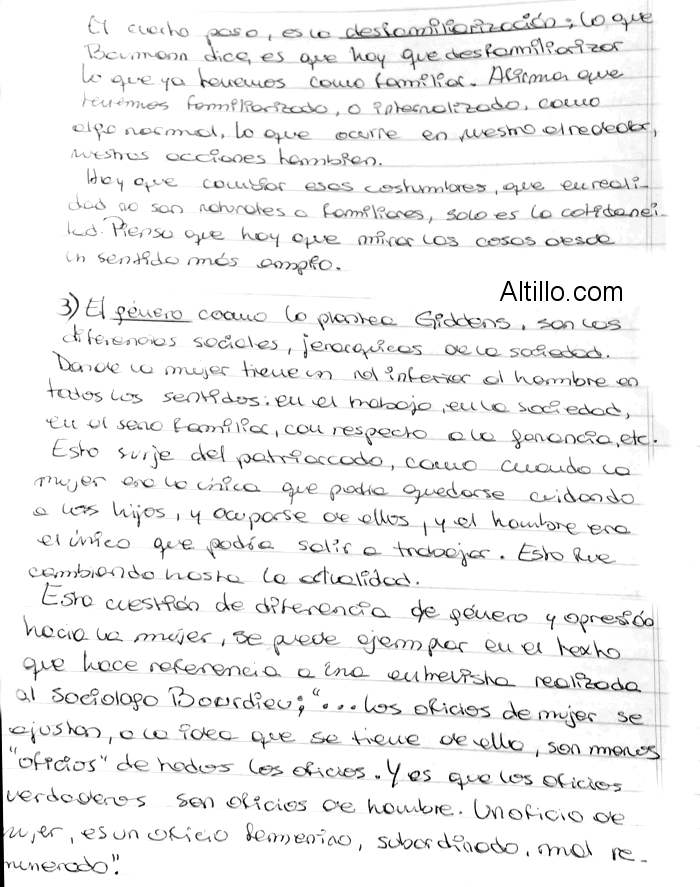 El cuarto paso, es la desfamiliarización; lo que
Baumann dice, es que hay que desfamiliarizar
lo que ya tenemos como familiar. Afirma que
tenemos familiarizado, o internalizado, como
algo normal, lo que ocurre en nuestro alrededor,
nuestras acciones tambien.
Hay que cambiar esas costumbres, que en reali-
dad no son naturales o familiares, solo es la cotidanei-
dad. Piensa que hay que mirar las cosas desde
un sentido más amplio.
Altillo.com
3) El género coomo lo plantea Giddens, son las
diferencias sociales, jerarquicas de la sociedad.
Donde la mujer tiene un rol inferior al hombre en
todos los sentidos: en el trabajo, en la sociedad,
en el seno familiar, con respecto a la ganancia, etc.
Esto surje del patriarcado, como cuando la
mujer era la única que podía quedarse cuidando
a los hijos, y ocuparse de ellos, y el hombre era
el único que podía salir a trabajar. Esto fue
cambiando hasta la actualidad.
Esta cuestión de diferencia de género y opresión
hacia la mujer, se puede ejempar en el texto
que hace referencia a una entrevista realizada
al Sociologo Bourdieu; "... Los oficios de mujer se
ajustan, a la idea que se tiene de ella, son menos
"oficios" de todos los oficios. Y es que los oficios
verdaderos son oficios de hombre. Un oficio de
mujer, es un oficio femenino, subordinado, mal re-
munerado".